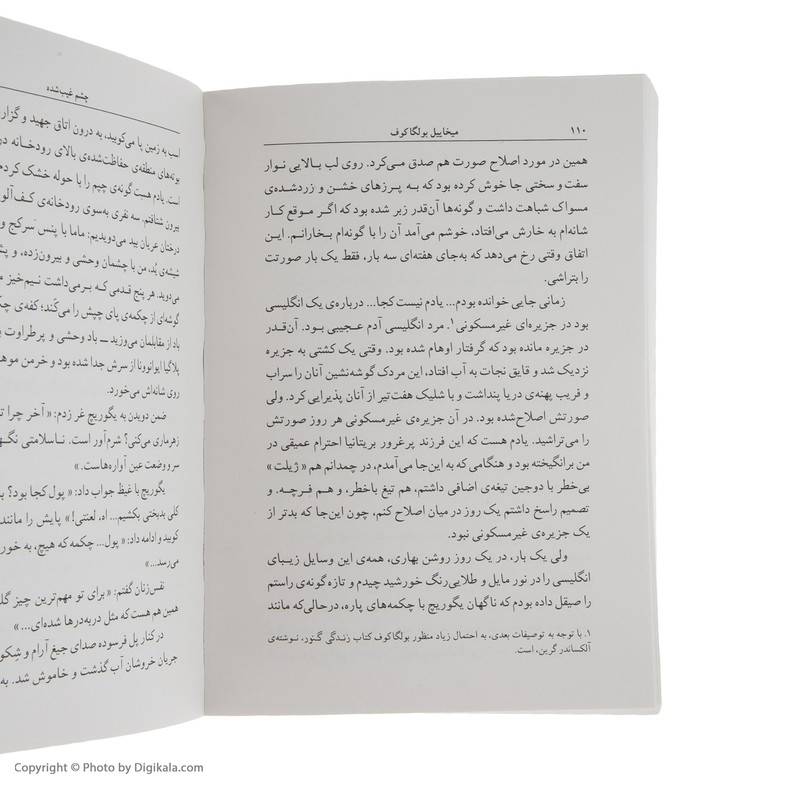 ۱۱۰ میخاییل بولگاکوف
همین در مورد اصلاح صورت هم صدق می‌کرد. روی لب بالایی نوار
سفت و سختی جا خوش کرده بود که به پرزهای خشن و زردشده‌ی
مسواک شباهت داشت و گونه‌ها آن‌قدر زبر شده بود که اگر موقع کار
شانه‌ام به خارش می‌افتاد، خوشم می‌آمد آن را با گونه‌ام بخارانم. این
اتفاق وقتی رخ می‌دهد که به‌جای هفته‌ای سه بار، فقط یک بار صورتت
را بتراشی.
زمانی جایی خوانده بودم... یادم نیست کجا... درباره‌ی یک انگلیسی
بود در جزیره‌ای غیرمسکونی۱. مرد انگلیسی آدم عجیبی بود. آن‌قدر
در جزیره مانده بود که گرفتار اوهام شده بود. وقتی یک کشتی به جزیره
نزدیک شد و قایق نجات به آب افتاد، این مردک گوشه‌نشین آنان را سراب
و فریب پهنه‌ی دریا پنداشت و با شلیک هفت‌تیر از آنان پذیرایی کرد. ولی
صورتش اصلاح‌شده بود. در آن جزیره‌ی غیرمسکونی هر روز صورتش
را می‌تراشید. یادم هست که این فرزند پرغرور بریتانیا احترام عمیقی در
من برانگیخته بود و هنگامی که به این‌جا می‌آمدم، در چمدانم هم «ژیلت»
بی‌خطر با دوجین تیغه‌ی اضافی داشتم، هم تیغ باخطر، و هم فرچه. و
تصمیم راسخ داشتم یک روز در میان اصلاح کنم، چون این‌جا که بدتر از
یک جزیره‌ی غیرمسکونی نبود.
ولی یک بار، در یک روز روشن بهاری، همه‌ی این وسایل زیبای
انگلیسی را در نور مایل و طلایی‌رنگ خورشید چیدم و تازه گونه‌ی راستم
را صیقل داده بودم که ناگهان یگوریچ با چکمه‌های پاره، درحالی‌که مانند
۱. با توجه به توصیفات بعدی، به احتمال زیاد منظور بولگاکوف کتاب زندگی گنور، نوشته‌ی
آلکساندر گرین، است.
چشم غیب‌شده
اسب به زمین پا می‌کوبید، به درون اتاق جهید و گزار
بوته‌های منطقه‌ی حفاظت‌شده‌ی بالای رودخانه در
است. یادم هست گونه‌ی چپم را با حوله خشک کردم
بیرون شتافتم. سه نفری به‌سوی رودخانه‌ی کف‌آلو
درختان عریان بید می‌دویدیم: ماما با پنس سرکج و
شیشه‌ی یُد، من با چشمان وحشی و بیرون‌زده، و پش
می‌دوید. هر پنج قدمی که برمی‌داشت نیم‌خیز م
گوشه‌ای از چکمه‌ی پای چپش را می‌کَند؛ کفه‌ی چک
باد از مقابلمان می‌وزید ــ باد وحشی و پرطراوت
پلاگیا ایوانوونا از سرش جدا شده بود و خرمن موه
روی شانه‌اش می‌خورد.
ضمن دویدن به یگوریچ غر زدم: «آخر چرا ت
زهرماری می‌کنی؟ شرم‌آور است. ناسلامتی نگه
سر و وضعت عین آواره‌هاست.»
یگوریچ با غیظ جواب داد: «پول کجا بود؟ ب
کلی بدبختی بکشیم... اه، لعنتی!» پایش را مانند
کوبید و ادامه داد: «پول... چکمه که هیچ، به خور
می‌رسد...»
نفس‌زنان گفتم: «برای تو مهم‌ترین چیز گل
همین هم هست که مثل دربه‌درها شده‌ای...»
درکنار پل فرسوده صدای جیغ آرام و شِکو
جریان خروشان آب گذشت و خاموش شد. به
Copyright © Photo by Digikala.com